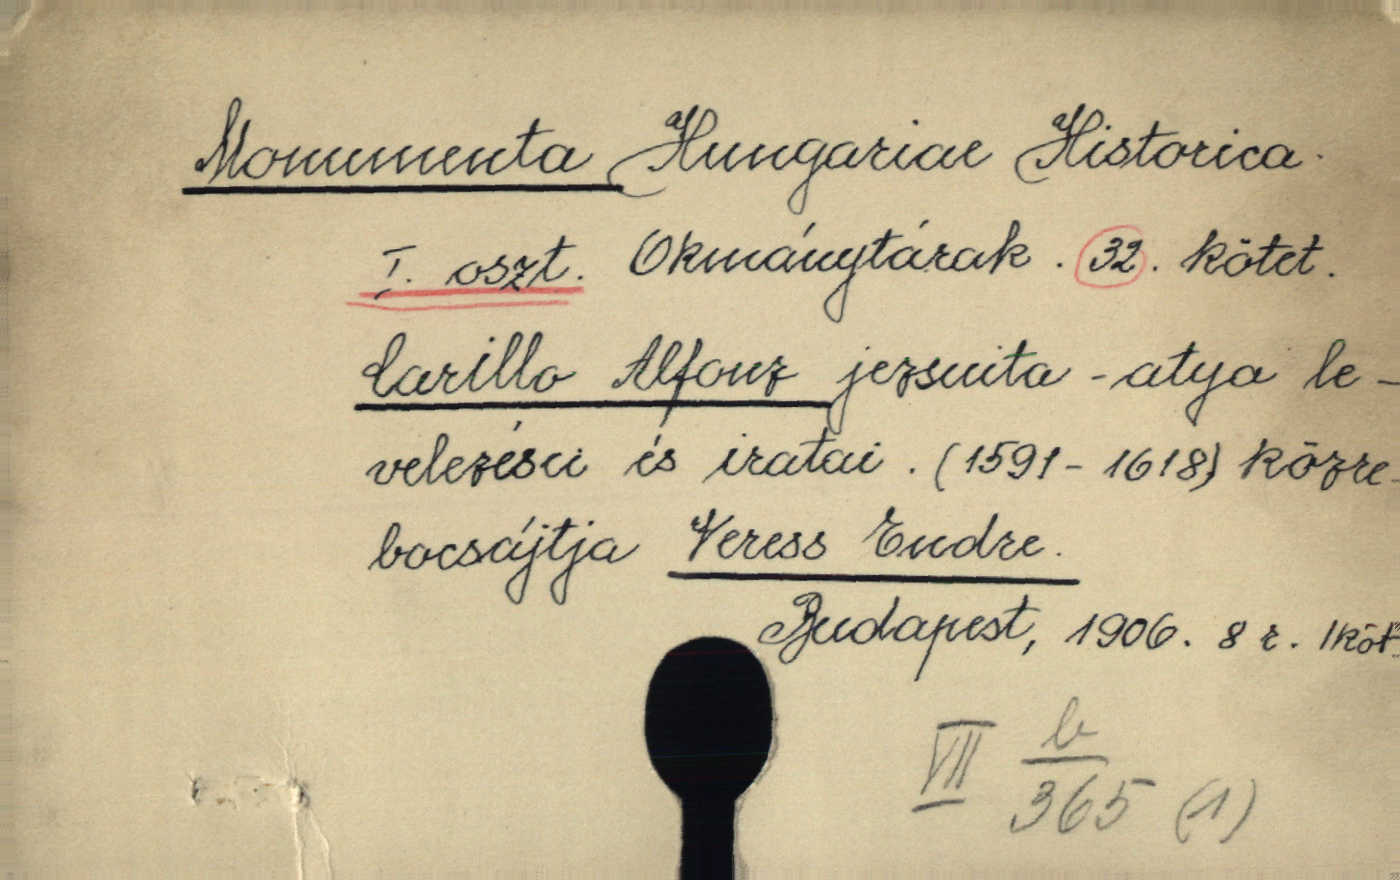 Monumenta Hungariae Historica.
I. oszt. Okmánytárak. 32. kötet.
Carillo Alfonz jezsuita-atya le-
velezései és iratai. (1591-1618) közre-
bocsájtja Veress Endre.
Budapest, 1906. 8 r. 1 köt.
VII b/365 (1)